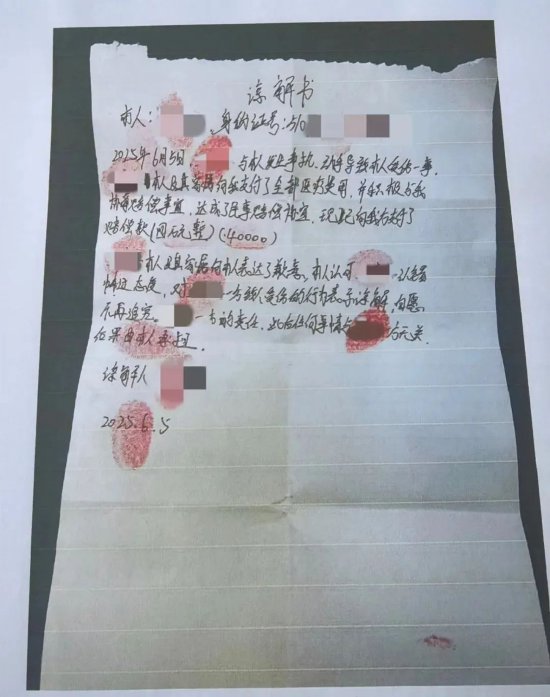 谅解书
本人: 身份证号:510
2025年6月5日, 与本人发生争执,动手导致本人受伤一事,
本人及其家属向我支付了全部医疗费用,并积极与我
协商赔偿事宜,达成了民事赔偿协议,现已向我支付了
赔偿款(四万元整)(40000)
本人及其家属向本人表达了歉意,本人认可 认错
态度,对 一方致人受伤的行为表示谅解,自愿
不再追究 一方的责任,此后任何事情与 方无关
后果由本人承担.
谅解人
2025.6.5